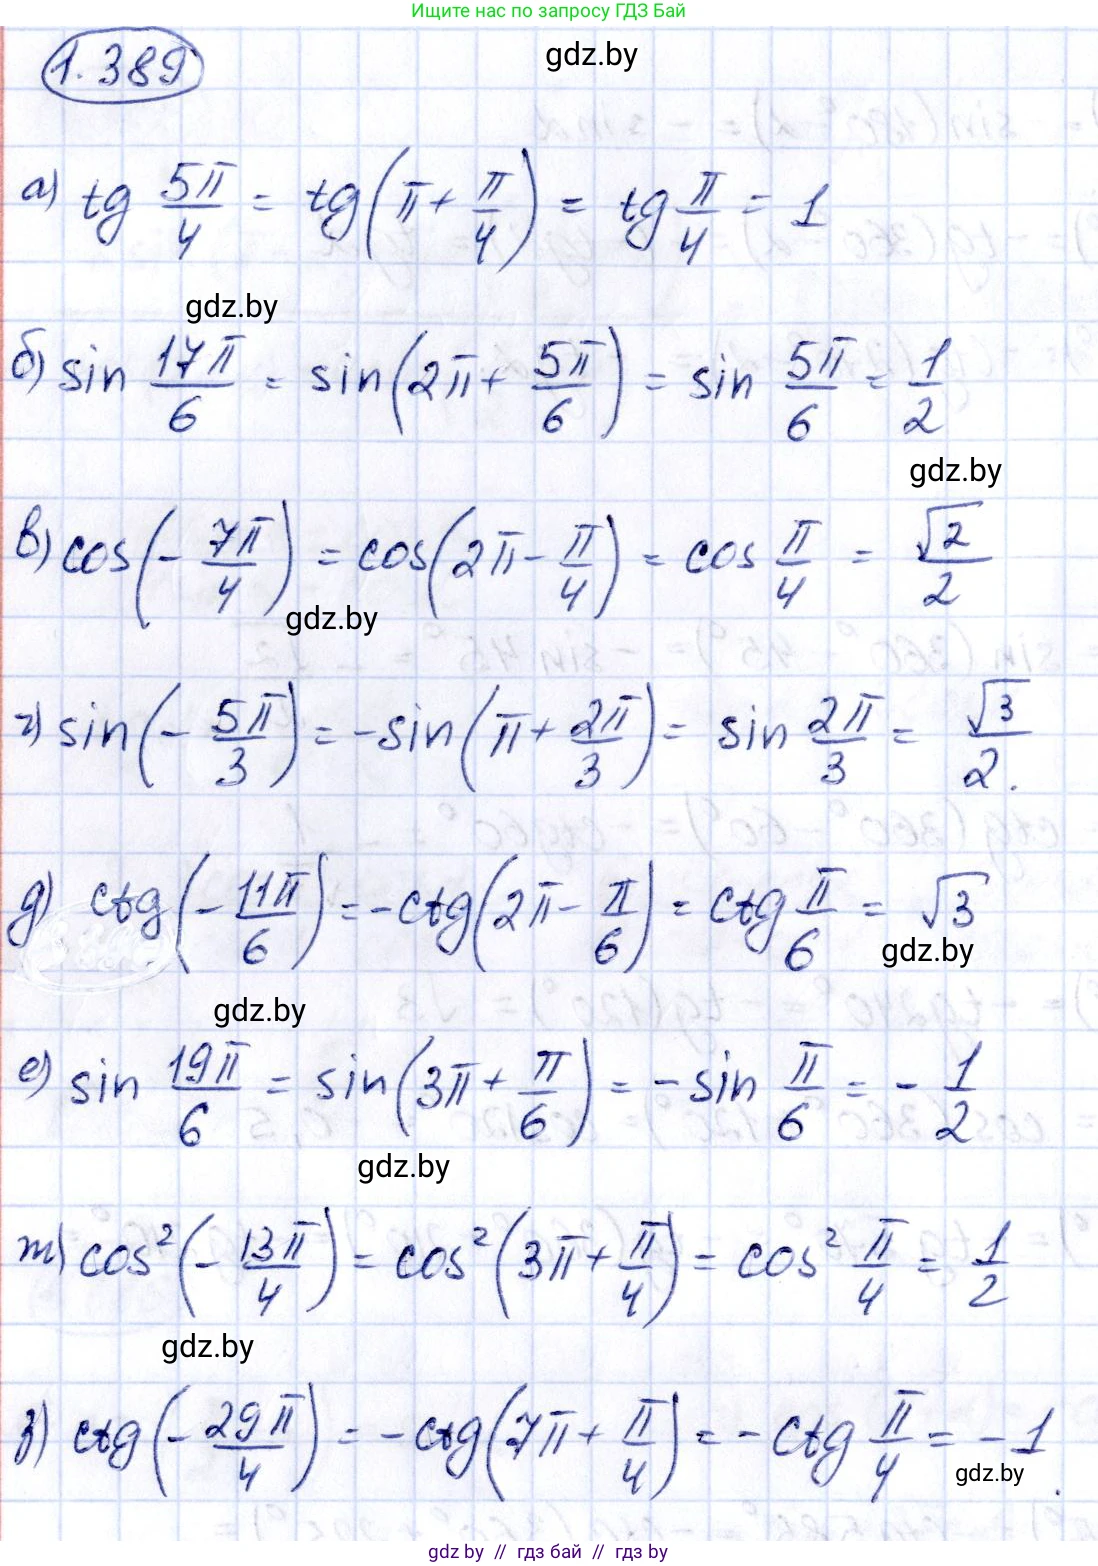 Ищите нас по запросу ГДЗ Бай
1.389
gdz.by
а) tg 5π/4 = tg(π + π/4) = tg π/4 = 1
gdz.by
б) sin 17π/6 = sin(2π + 5π/6) = sin 5π/6 = 1/2
gdz.by
в) cos(- 7π/4) = cos(2π - π/4) = cos π/4 = √2/2
gdz.by
г) sin(- 5π/3) = -sin(π + 2π/3) = sin 2π/3 = √3/2.
д) ctg(- 11π/6) = -ctg(2π - π/6) = ctg π/6 = √3
gdz.by
gdz.by
е) sin 19π/6 = sin(3π + π/6) = -sin π/6 = - 1/2
gdz.by
ж) cos²(- 13π/4) = cos²(3π + π/4) = cos² π/4 = 1/2
gdz.by
з) ctg(- 29π/4) = -ctg(7π + π/4) = -ctg π/4 = -1.
gdz.by
gdz.by // гдз бай // гдз by